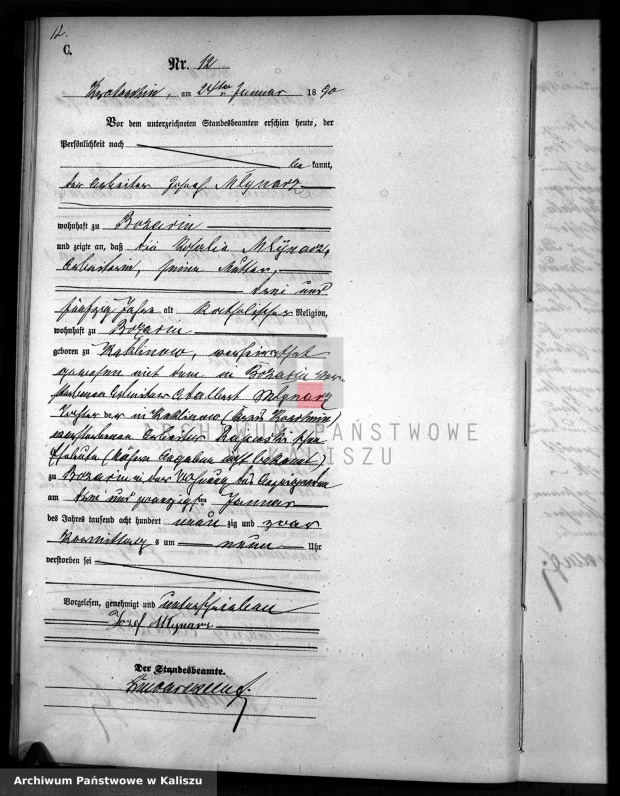 12.
C.
Nr. 12
am 24ten Januar 1890
Vor dem unterzeichneten Standesbeamten erschien heute, der
Persönlichkeit nach
be kannt,
der Arbeiter Josef Mlynarz
wohnhaft zu Bozacin
und zeigte an, daß die Rosalia Mlÿnarz,
Arbeiterin, seine Mutter,
drei und
fünfzig Jahre alt katholischer Religion,
wohnhaft zu Bozacin
geboren zu Kaklinow, verheirathet
gewesen mit dem in Bozacin ver-
storbenen Arbeiter Adalbert Mlynarz
Tochter der in Kaklinow (Kreis Koschmin)
verstorbenen Arbeiter
Eheleute (nähere Angaben nicht bekannt)
zu Bozacin in der Wohnung des Anzeigenden
am drei und zwanzigsten Januar
des Jahres tausend acht hundert neun zig und zwar
Vormittags um neun Uhr
verstorben sei
Vorgelesen, genehmigt und unterschrieben
Josef Mlynarz
Der Standesbeamte.
ARCHIWUM PAŃSTWOWE
W KALISZU
Archiwum Państwowe w Kaliszu